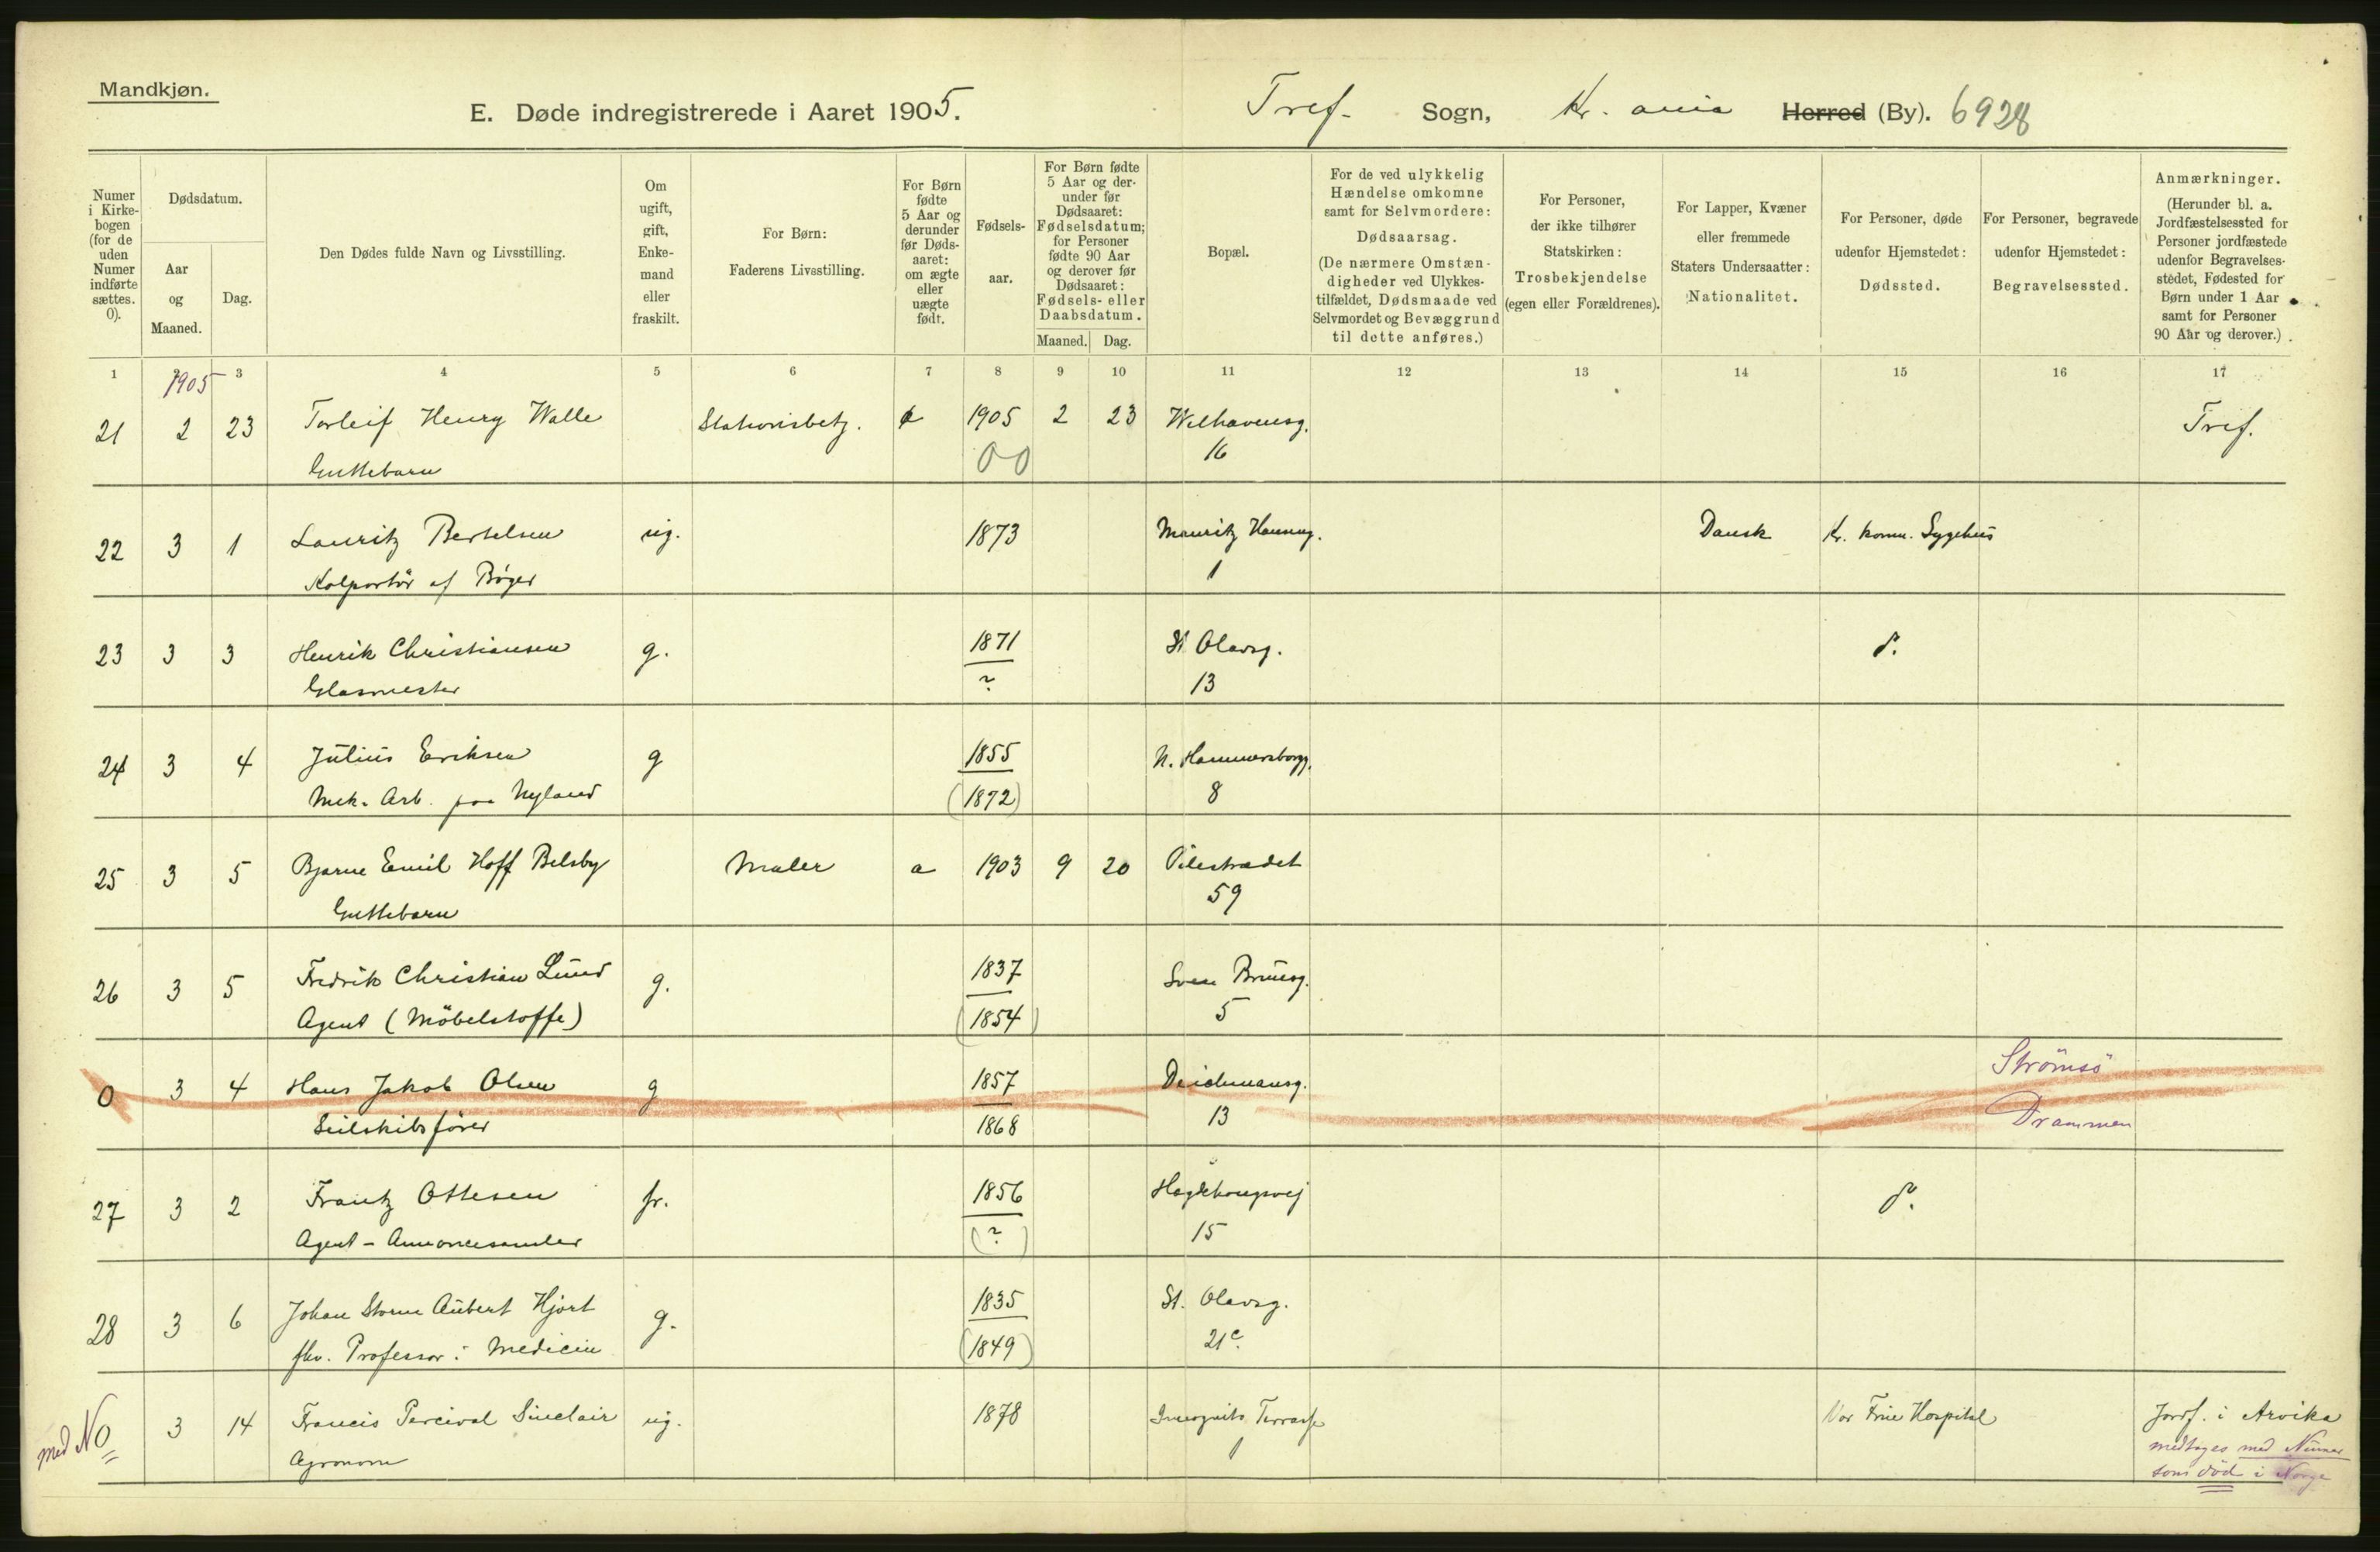 Mandkjøn.
E. Døde indregistrerede i Aaret 1905. Tref. Sogn, Kr. ania Herred (By). 6928
Numer i Kirkebogen (for de uden Numer indførte sættes. 0).
Dødsdatum.
Aar og Maaned.
Dag.
Den Dødes fulde Navn og Livsstilling.
Om ugift, gift, Enkemand eller fraskilt.
For Børn: Faderens Livsstilling.
For Børn fødte 5 Aar og derunder før Dødsaaret: om ægte eller uægte født.
Fødselsaar.
For Børn fødte 5 Aar og derunder før Dødsaaret: Fødselsdatum; for Personer fødte 90 Aar og derover før Dødsaaret: Fødsels- eller Daabsdatum.
Maaned. Dag.
Bopæl.
For de ved ulykkelig Hændelse omkomne samt for Selvmordere: Dødsaarsag. (De nærmere Omstændigheder ved Ulykkestilfældet, Dødsmaade ved Selvmordet og Bevæggrund til dette anføres.)
For Personer, der ikke tilhører Statskirken: Trosbekjendelse (egen eller Forældrenes).
For Lapper, Kvæner eller fremmede Staters Undersaatter: Nationalitet.
For Personer, døde udenfor Hjemstedet: Dødssted.
For Personer, begravede udenfor Hjemstedet: Begravelsessted.
Anmærkninger. (Herunder bl. a. Jordfæstelsessted for Personer jordfæstede udenfor Begravelsesstedet, Fødested for Børn under 1 Aar samt for Personer 90 Aar og derover.)
1 2 3 4 5 6 7 8 9 10 11 12 13 14 15 16 17
1905
21 2 23 Torleif Henry Walle Stationsbetj. 1905 2 23 Welhavensg. Tref.
Guttebarn 00 16
22 3 1 Lauritz Bertelsen ug. 1873 Mauritz Hansensg. Dansk Kr. komm. Sygehus
Kolportör af Bøger 1
23 3 3 Henrik Christiansen g. 1871 St Olavsg. do.
Glasmester ? 13
24 3 4 Julius Eriksen g 1855 N. Hammersborgg.
Mek. Arb. paa Nyland (1872) 8
25 3 5 Bjarne Emil Hoff Belsby Maler a 1903 9 20 Pilestrædet
Guttebarn 59
26 3 5 Fredrik Christian Lund g. 1837 Sven Bruusg.
Agent (Möbelstoffe) (1854) 5
0 3 4 Hans Jakob Olsen g 1857 Deichmansg. Strömsö
Seilskibsfører 1868 13 Drammen
27 3 2 Frantz Ottesen fr. 1856 Hægdehaugsvej do.
Agent - Annoncesamler (?) 15
28 3 6 Johan Storm Aubert Hjort g. 1835 St. Olavsg.
fhv. Professor i Medicin (1849) 21c.
med No 3 14 Francis Percival Sinclair ug. 1878 Incognito Terrasse Vor Frue Hospital Jordf. i Arvika
Agronom 1 medtages med Numer
som död i Norge